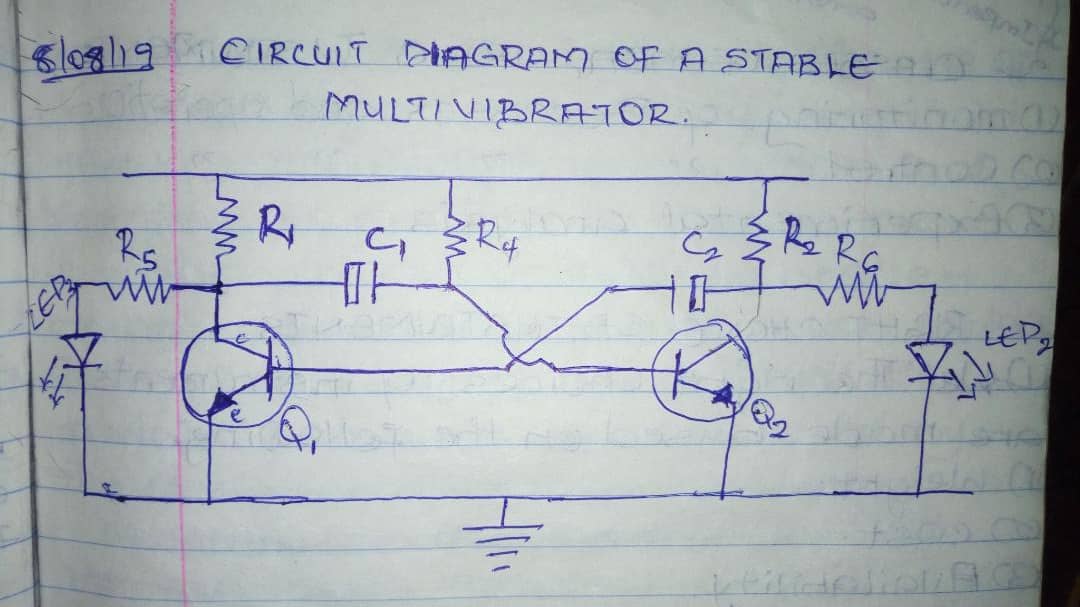 8/08/19 CIRCUIT DIAGRAM OF A STABLE
MULTIVIBRATOR.
R1
C1
R4
C2
R2
R6
R5
LED2
c
e
Q1
Q2